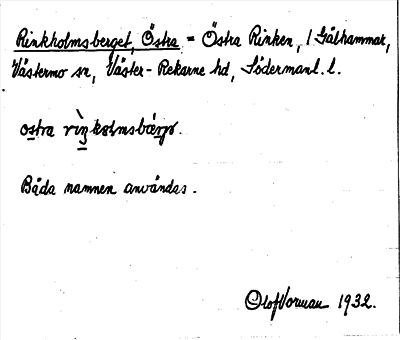 Rinkholmsberget, Östra = Östra Rinken, / Gålhammar,
Västermo sn, Väster-Rekarne hd, Södermanl. l.
Båda namnen användas.
Olof Vorman 1932.